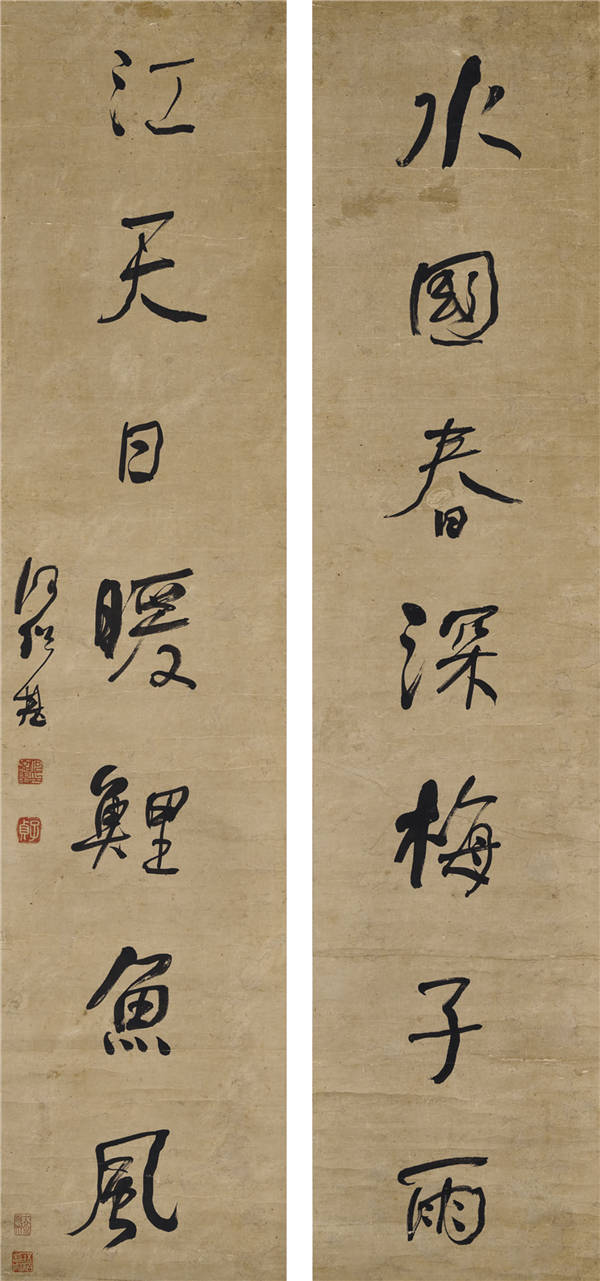 水國春深梅子雨
江天日暖鯉魚風
何紹基
子貞